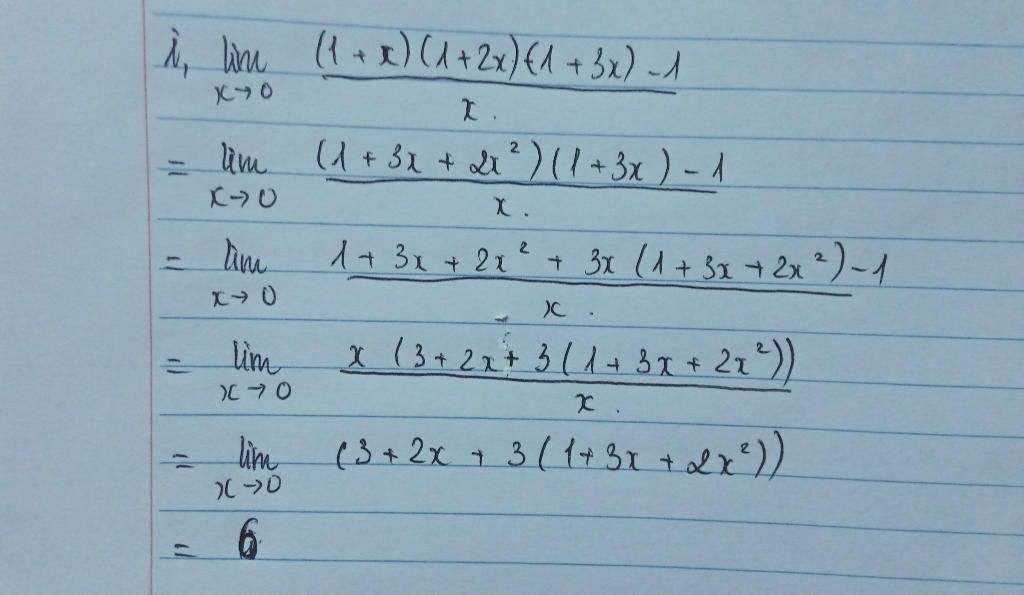 i, lim x→0 ((1 + x)(1+2x)(1 + 3x) - 1) / x.
= lim x→0 ((1 + 3x + 2x²)(1+3x) - 1) / x.
= lim x→0 (1 + 3x + 2x² + 3x (1+3x+2x²) - 1) / x.
= lim x→0 (x (3 + 2x + 3(1+3x+2x²))) / x.
= lim x→0 (3 + 2x + 3(1+3x+2x²))
= 6